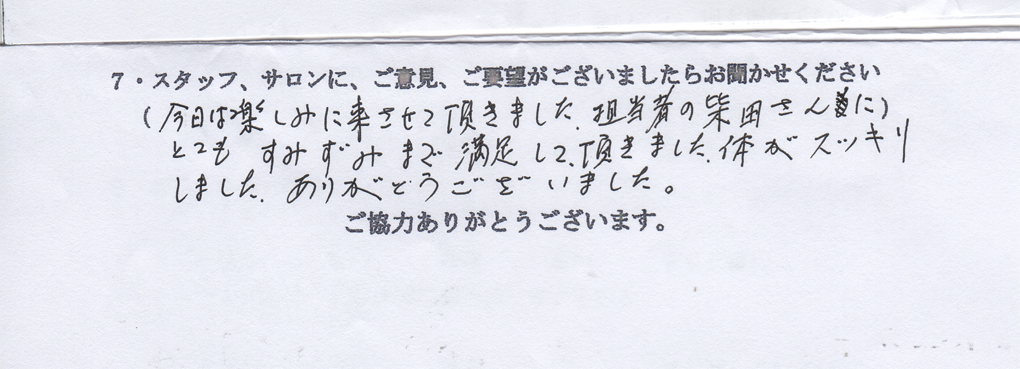 7・スタッフ、サロンに、ご意見、ご要望がございましたらお聞かせください
(今日は楽しみに来させて頂きました。担当者の柴田さんに)
とても すみずみまで 満足して、頂きました。体がスッキリ
しました。ありがとうございました。
ご協力ありがとうございます。